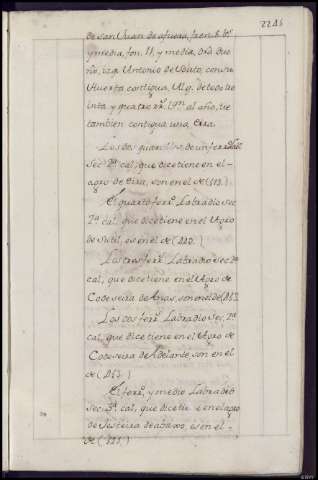 2245
de san Juan de afuera, tien. 6. bs.
y media, fon. 11, y media, Dra. Due
ño, izq. Antonio de Souto, con su
Huerta contigua, Alq. de todo tre
inta y quatro rr. Von. al año, tie
tambien contigua una Eira.
Los dos quartillos, de un ferr.
Sec. 2ª cal, que dice tiene en el
agro de Eira, son en el de (113.)
El quarto ferr. Labradio sec.
2ª cal, que dice tiene en el Agro
de Sutil, es en el de (220.)
Los tres ferr. Labradio sec. 2ª
cal, que dice tiene en el Agro de
Codeseira de Atras, son en el de
Los dos ferr. Labradio sec. 2ª
cal, que dice tiene en el Agro de
Codeseira de Adelante, son en el
de
El ferr. y medio Labradio
sec. 3ª cal, que dice tiene en el agro
de Sesteira de abaxo, es en el
de